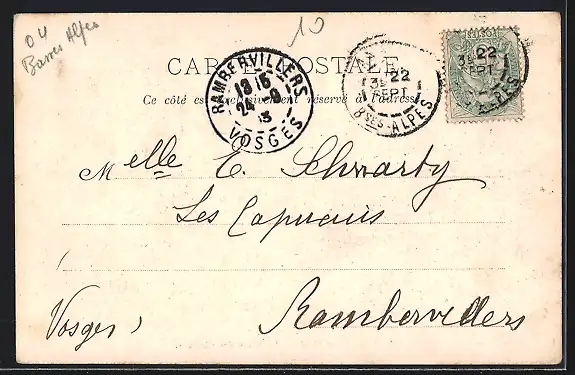 04
Basses Alpes
10
CARTE POSTALE
Ce côté est exclusivement réservé à l'adresse
RAMBERVILLERS
13 15
24 9
3
VOSGES
22
3E SEPT
BSES-ALPES
22
3E SEPT
ALPES
Melle E. Schwarty
Les Capucins
Rambervillers
Vosges